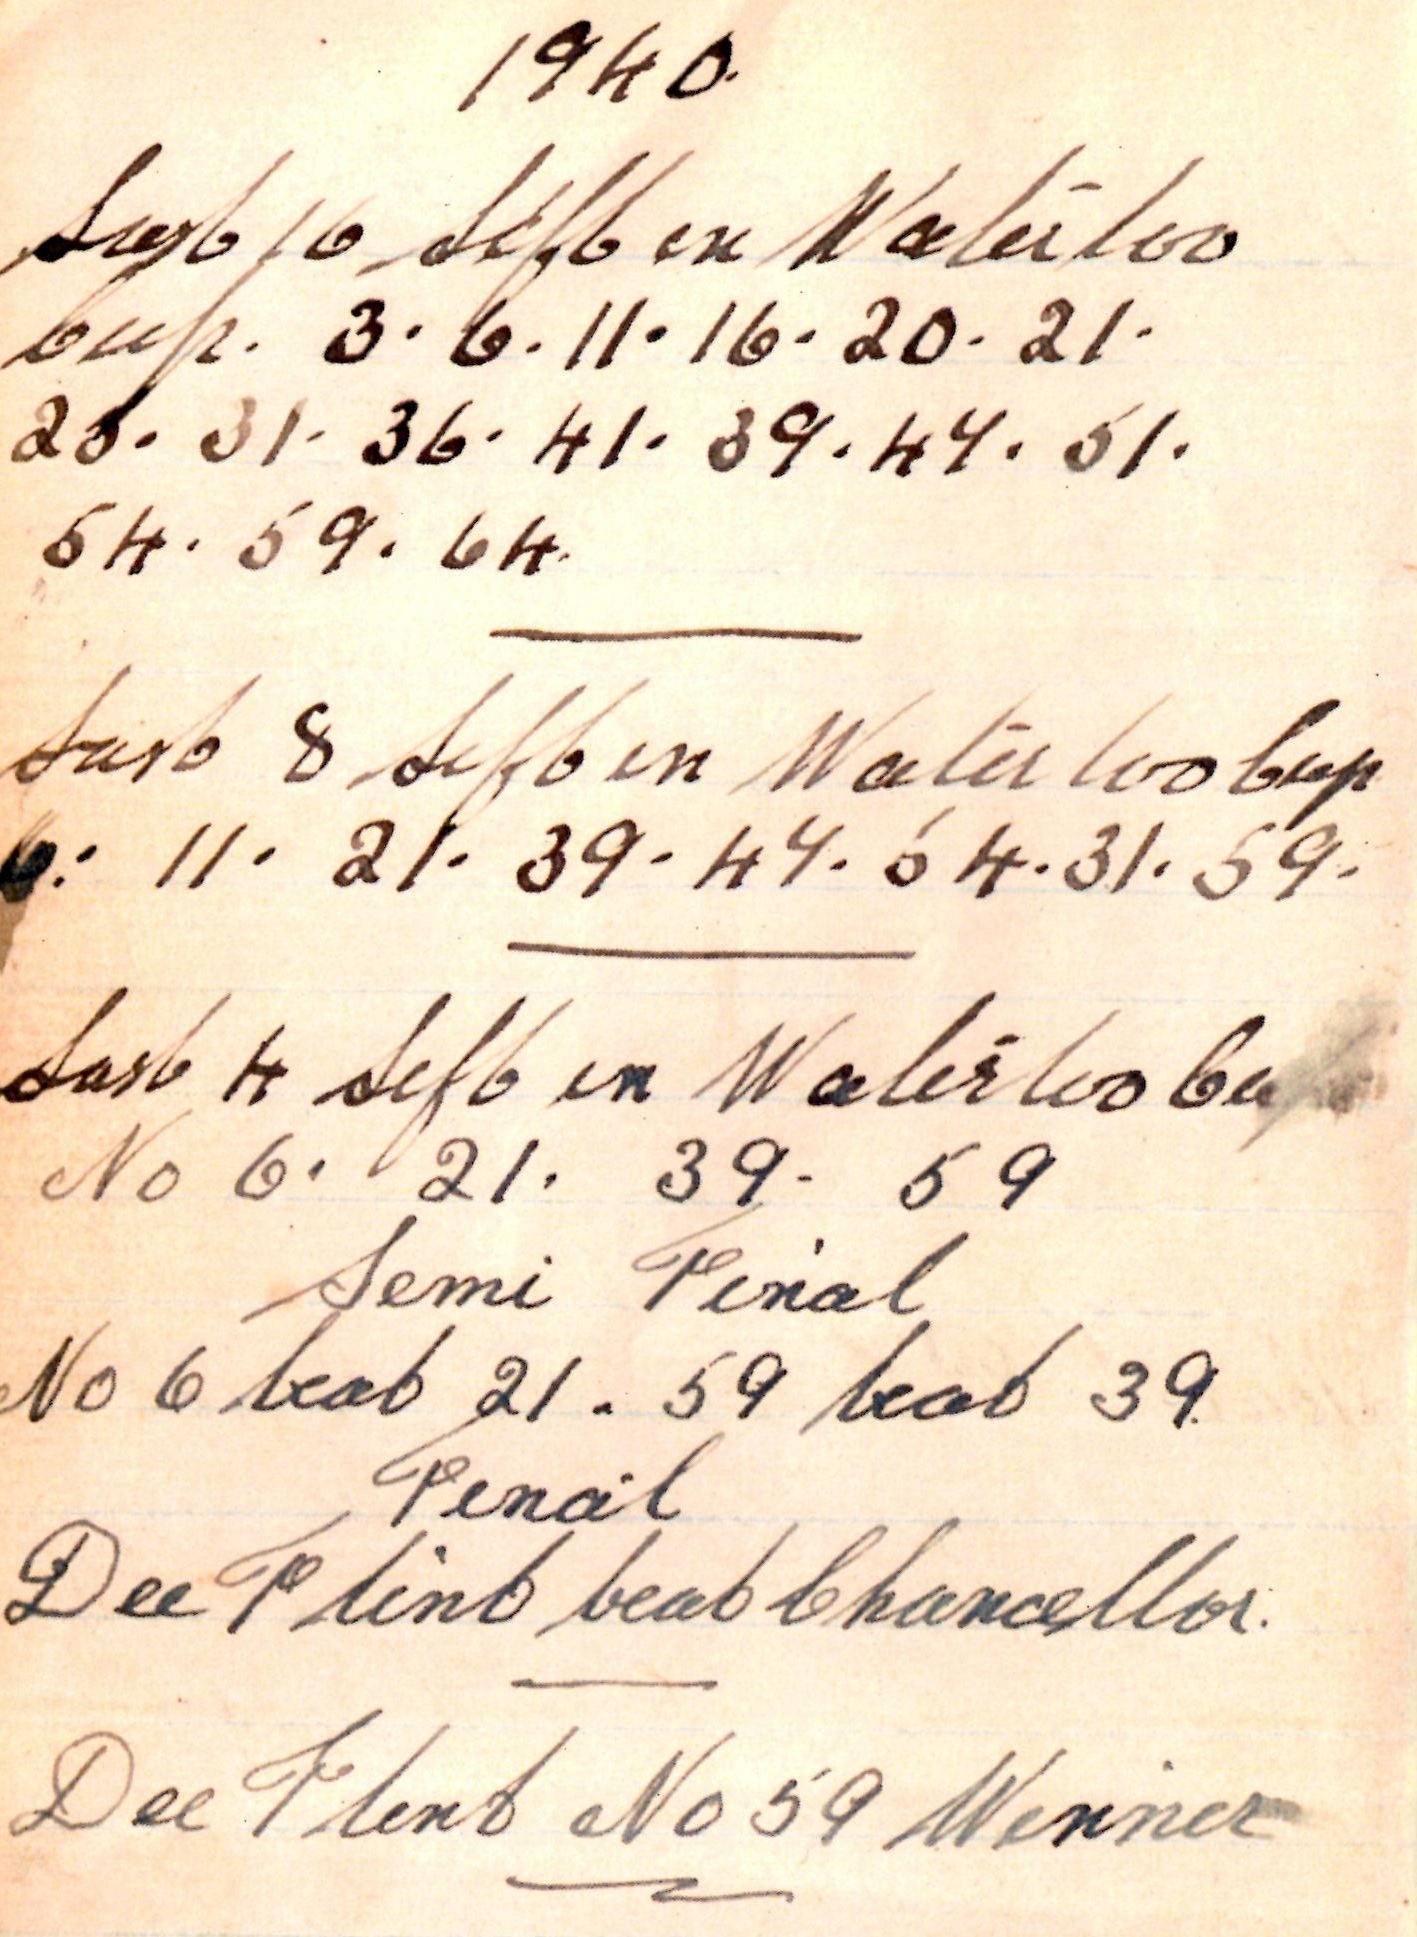 1940.
Last 16 Left in Waterloo
Cup. 3. 6. 11. 16. 20. 21.
31. 36. 41. 39. 47. 51.
54. 59. 64.
Last 8 Left in Waterloo Cup
6: 11. 21. 39. 47. 54. 31. 59.
Last 4 Left in Waterloo Cup
No 6. 21. 39. 59
Semi Final
No 6 beat 21. 59 beat 39.
Final
Dee Flint beat Chancellor.
Dee Flint No 59 Winner